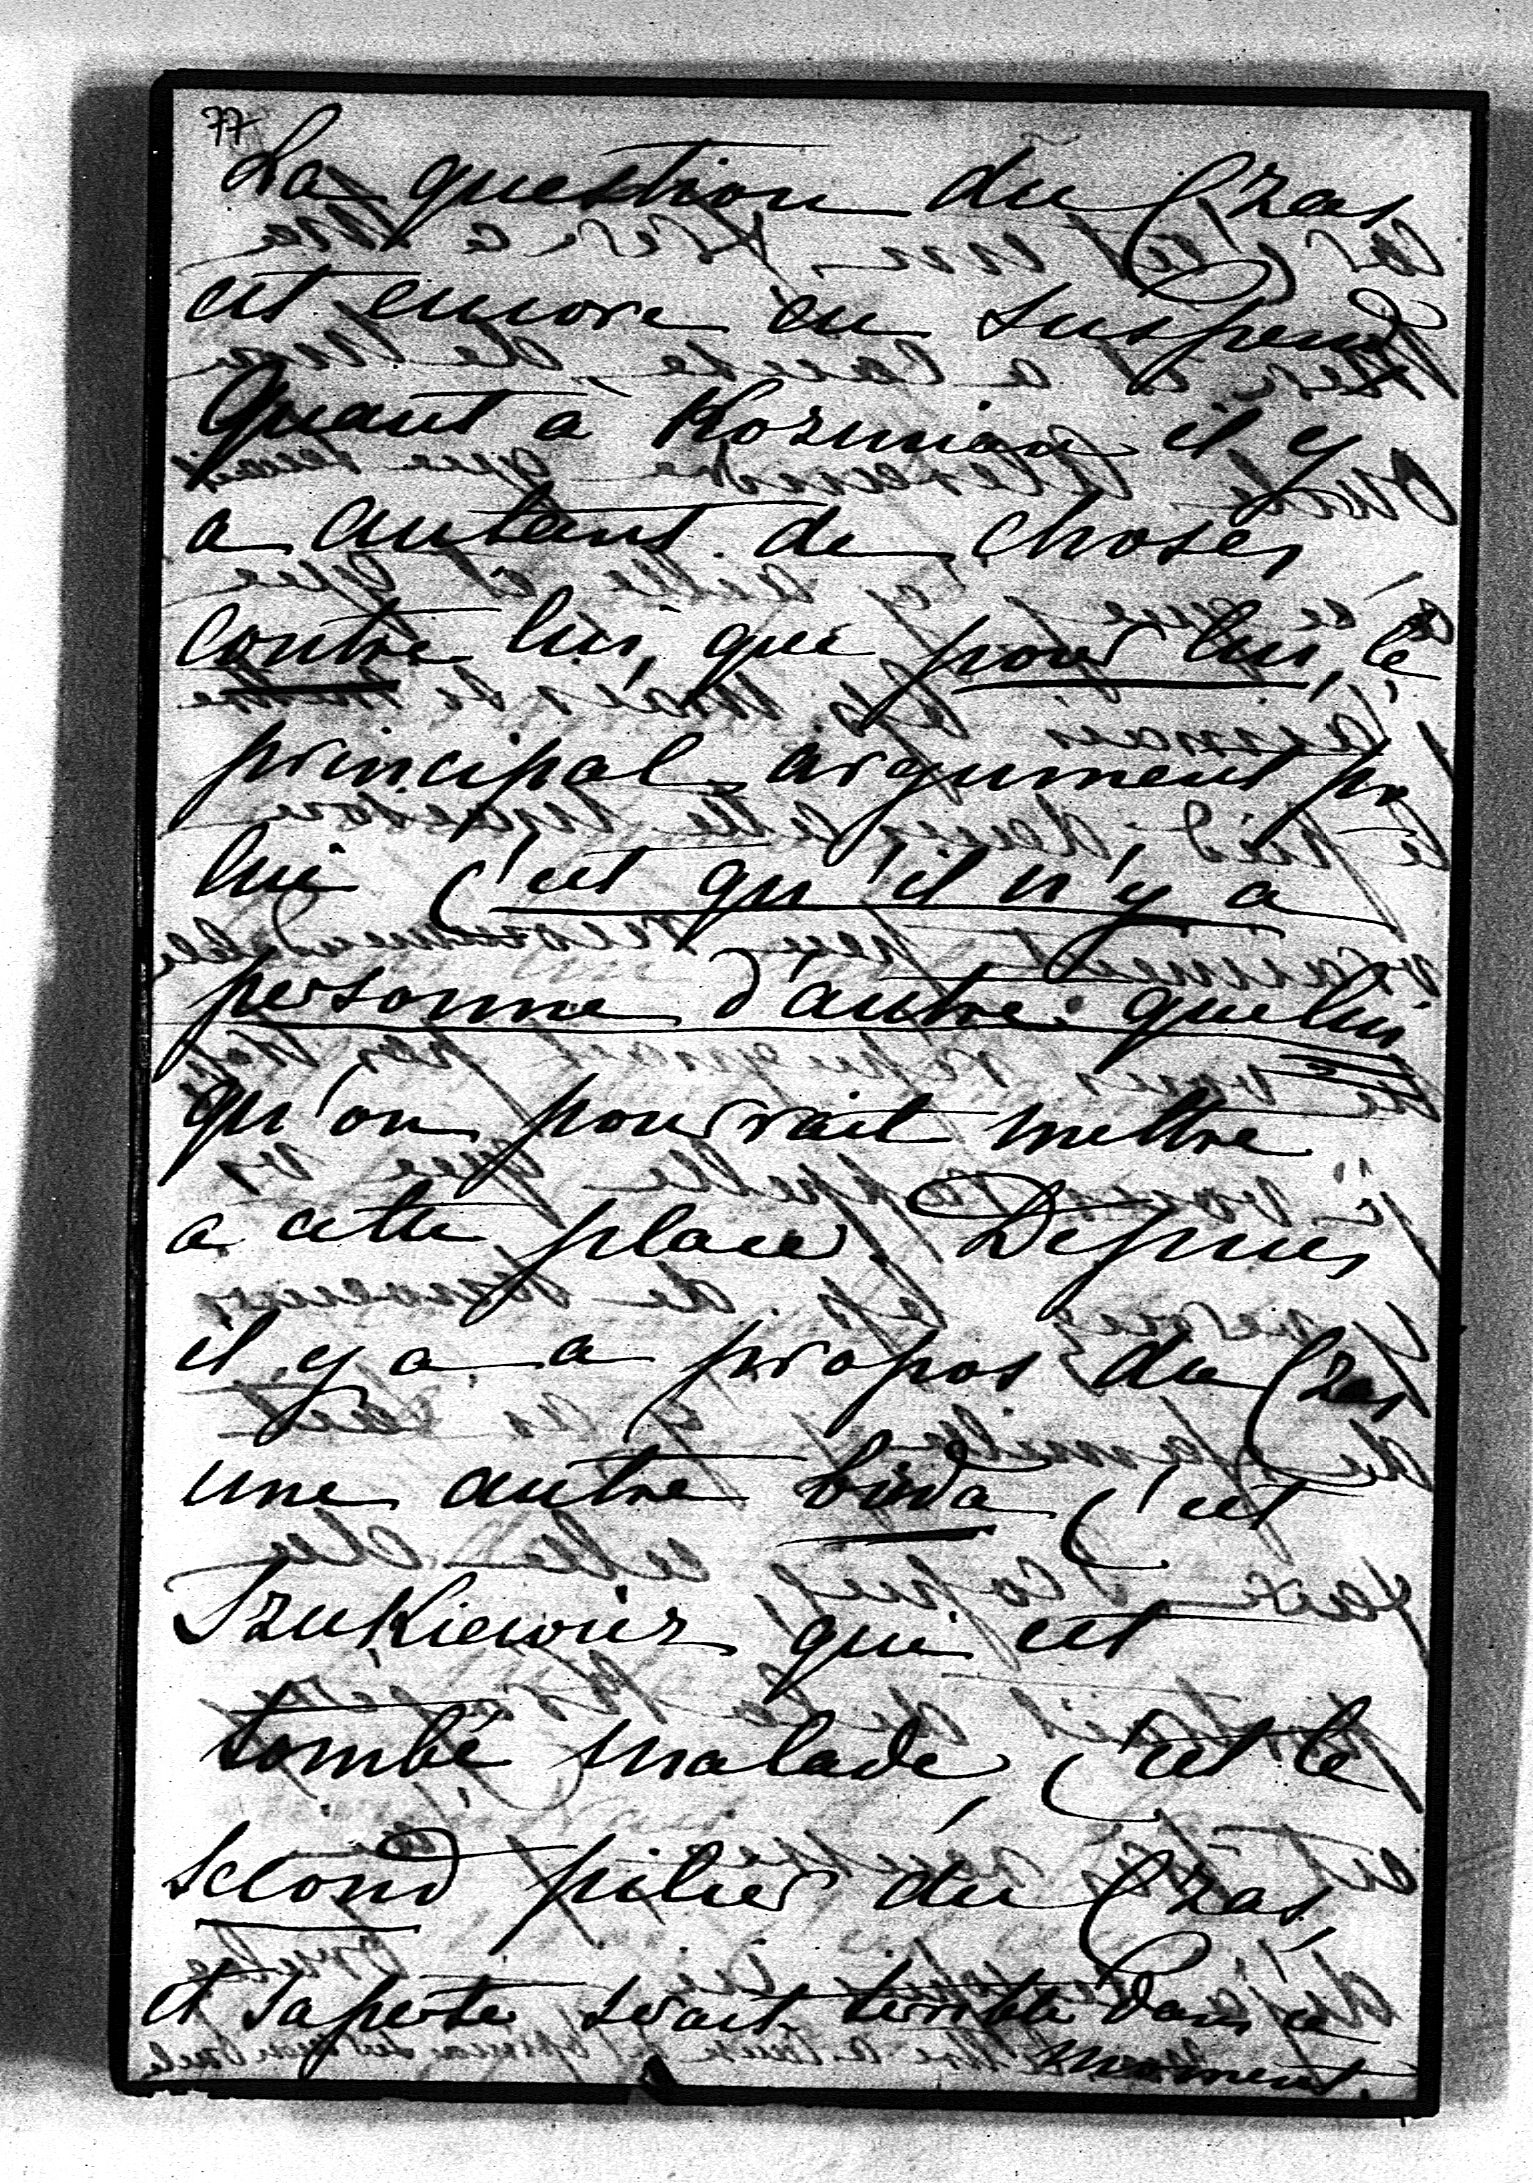 77
La question du Czas
est encore en suspend
Quant à Kozmian il y
a autant de choses
contre lui, que pour lui, le
principal argument pr
lui c'est qu'il n'y a
personne d'autre que lui
qu'on pourrait mettre
a cette place. Depuis
il y a a propos du Czas
une autre biéda c'est
Szukiewicz qui est
tombé malade, c'est le
second pilier du Czas,
et sa perte serait terrible dans ce
moment.